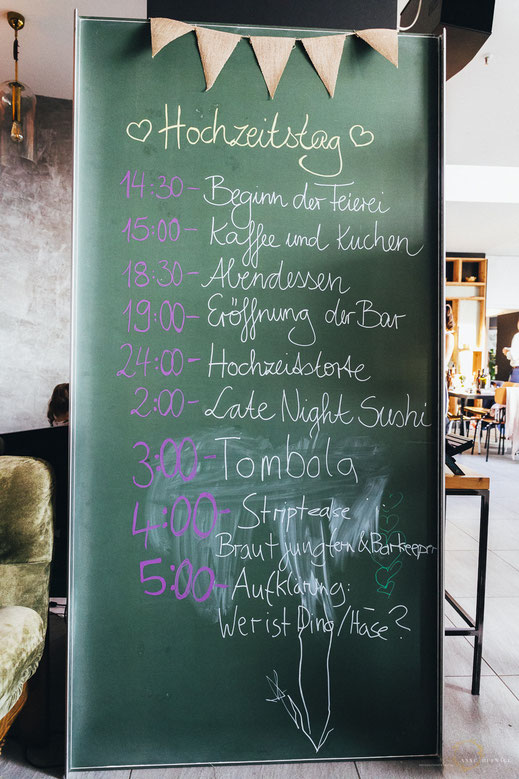 ♡ Hochzeitstag ♡
14:30 - Beginn der Feierei
15:00 - Kaffee und Kuchen
18:30 - Abendessen
19:00 - Eröffnung der Bar
24:00 - Hochzeitstorte
2:00 - Late Night Sushi
3:00 - Tombola
4:00 - Striptease
Brautjungfern & Barkeeper
5:00 - Aufklärung:
Wer ist Dino/Hase?